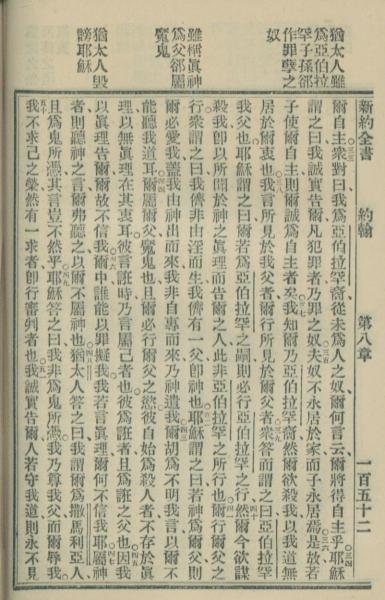 猶太人雖
爲亞伯拉
罕子孫卻
作罪孽之
奴
雖稱眞神
爲父卻屬
魔鬼
猶太人毀
謗耶穌
新約全書 約翰 第八章 一百五十二
爾自主衆對曰我爲亞伯拉罕裔從未爲人之奴爾何言云爾將得自主乎耶穌
謂之曰我誠實告爾凡犯罪者乃罪之奴夫奴不永居於家而子永居焉是故若
子使爾自主則爾誠爲自主者矣我知爾乃亞伯拉罕裔然爾欲殺我以我道無
居於爾衷也我言所見於我父者爾行所見於爾父者衆答而謂之曰亞伯拉罕
我父也耶穌謂之曰爾若爲亞伯拉罕之嗣則必行亞伯拉罕之行然爾今欲謀
殺我卽以所聞於神之眞理而告爾之人此非亞伯拉罕之所行也爾行爾父之
行衆謂之曰我儕非由淫而生我儕有一父卽神也耶穌謂之曰若神爲爾父則
爾必愛我蓋我由神出而來我非自專而來乃神遣我爾胡爲不明我言以爾不
能聽我道耳爾屬爾父魔鬼也且爾必行爾父之慾彼自始爲殺人者不存於眞
理以無眞理在其衷耳彼言誑時乃言屬己者也彼爲誑者且爲誑之父因我
以眞理告爾爾故不信我爾中誰能以罪擬我我若言眞理爾何不信我耶屬神
者則聽神之言爾弗聽之以爾不屬神也猶太人答之曰我謂爾爲撒馬利亞人
且爲鬼所憑其言豈不然乎耶穌答之曰我非爲鬼所憑我乃尊我父而爾辱我
我不求己之榮然有一求者卽行審判者也我誠實告爾人若守我道則永不見